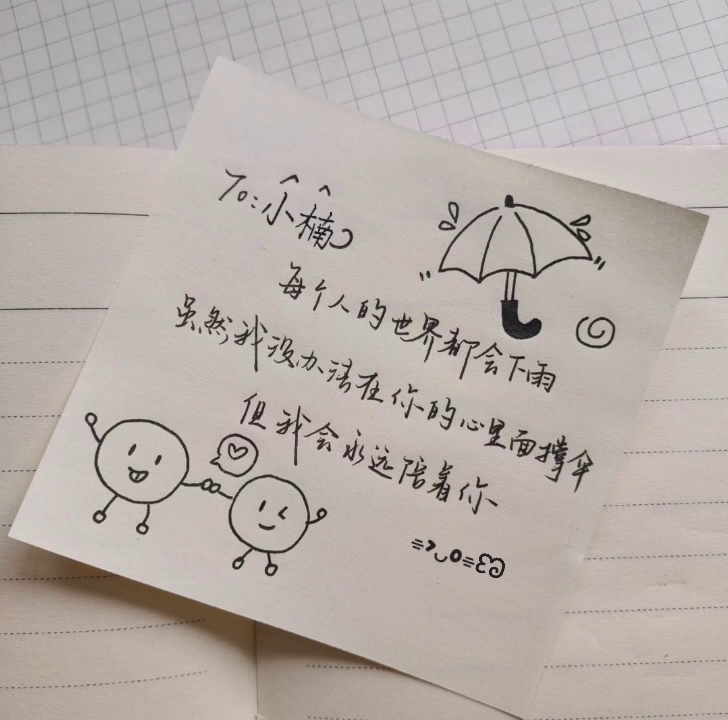 To:小楠
每个人的世界都会下雨
虽然我没办法在你的心里面撑伞
但我会永远陪着你